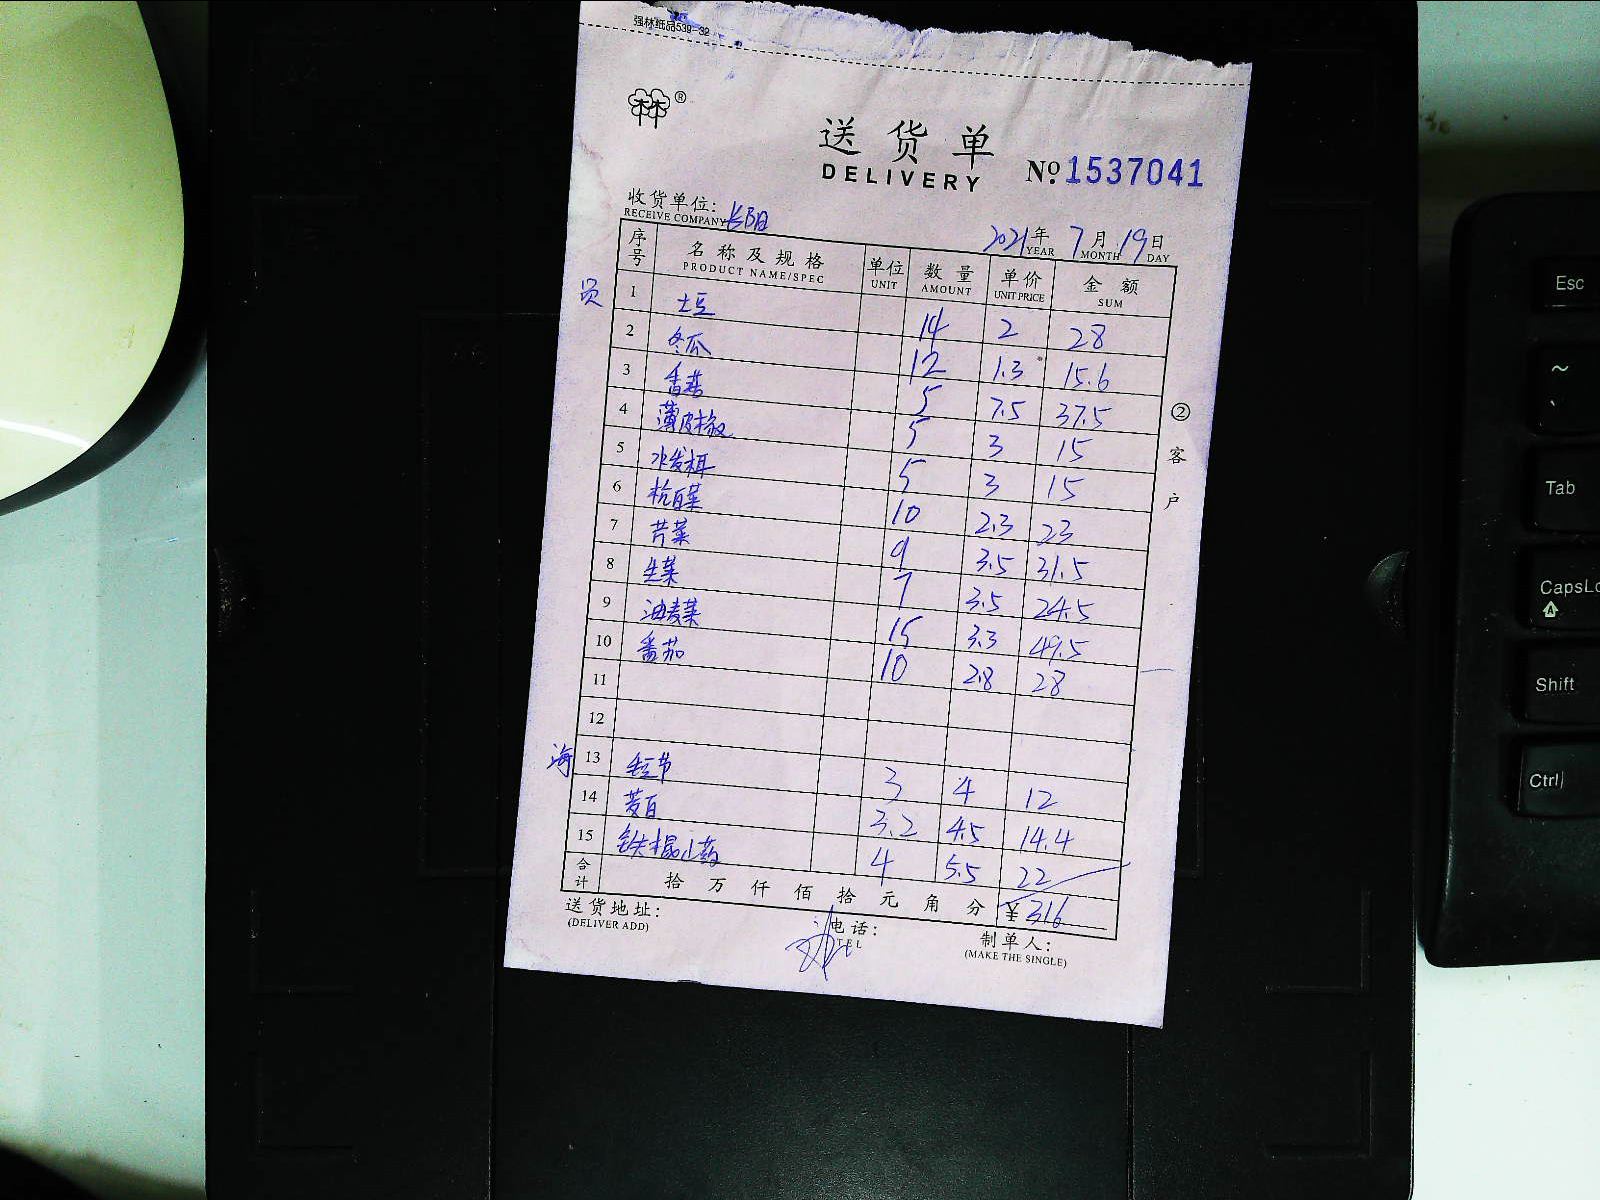 强林纸品539-32
®
送货单
DELIVERY
№ 1537041
收货单位:
RECEIVE COMPANY
2021年 7月 19日
YEAR MONTH DAY
序号 名称及规格 单位 数量 单价 金额
PRODUCT NAME/SPEC UNIT AMOUNT UNIT PRICE SUM
员
1 土豆 14 2 28
2 冬瓜 12 1.3 15.6
3 香菇 5 7.5 37.5
4 薄皮椒 5 3 15
5 水发木耳 5 3 15
6 杭白菜 10 2.3 23
7 芹菜 9 3.5 31.5
8 生菜 7 3.5 24.5
9 油麦菜 15 3.3 49.5
10 番茄 10 2.8 28
11
12
海
13 3 4 12
14 茭白 3.2 4.5 14.4
15 铁棍山药 4 5.5 22
合计 拾万仟佰拾元角分 ¥316
②客户
送货地址:
(DELIVER ADD)
电话:
TEL
制单人:
(MAKE THE SINGLE)
Esc
~
Tab
CapsLo
A
Shift
Ctrl